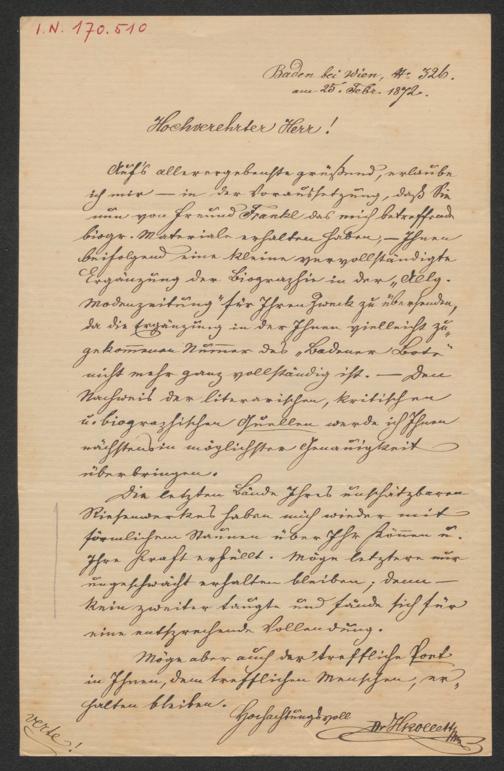 I.N. 170.510
Baden bei Wien, Nr. 326.
am 25. Febr. 1872.
Hochverehrter Herr!
Auf's allerergebenste grüßend, erlaube
ich mir — in der Voraussetzung, daß Sie
nun von Freund Frankl das mich betreffende
biogr. Materiale erhalten haben, — Ihnen
beifolgend eine kleine vervollständigte
Ergänzung der Biographie in der „Allg.
Modenzeitung" für Ihren Zweck zu übersenden,
da die Ergänzung in der Ihnen vielleicht zu-
gekommenen Nummer des „Badener Bote"
nicht mehr ganz vollständig ist. — Den
Nachweis der literarischen, kritischen
u. biographischen Quellen werde ich Ihnen
nächstens in möglichster Genauigkeit
überbringen.
Die letzten Bände Ihres unschätzbaren
Riesenwerkes haben mich wieder mit
förmlichem Staunen über Ihr Können u.
Ihre Kraft erfüllt. Möge letztere nur
ungeschwächt erhalten bleiben; denn —
kein zweiter taugte und fände sich für
eine entsprechende Vollendung.
Möge aber auch der treffliche Poet
in Ihnen, dem trefflichen Menschen, er-
halten bleiben.
Hochachtungsvoll
Dr HRollett
verte!